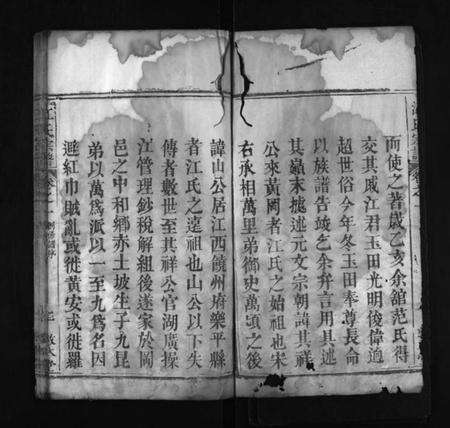 而使之著歲乙亥余舘范氏得
交其戚江君玉田光明俊偉適
超世俗今年冬玉田奉尊長命
以族譜告竣乞余弁言用具述
其巔末摭述元文宗朝諱其祥
公來黃岡者江氏之始祖也宋
右承相萬里弟御史萬頃之後
諱山公居江西饒州府樂平縣
者江氏之遠祖也山公以下失
傳者數世至其祥公官湖廣操
江管理鈔稅解組後遂家於岡
邑之中和鄉赤土坡生子九昆
弟以萬爲派以一至九爲名因
避紅巾賊亂或徙黃安或徙羅
江氏宗譜
卷之一